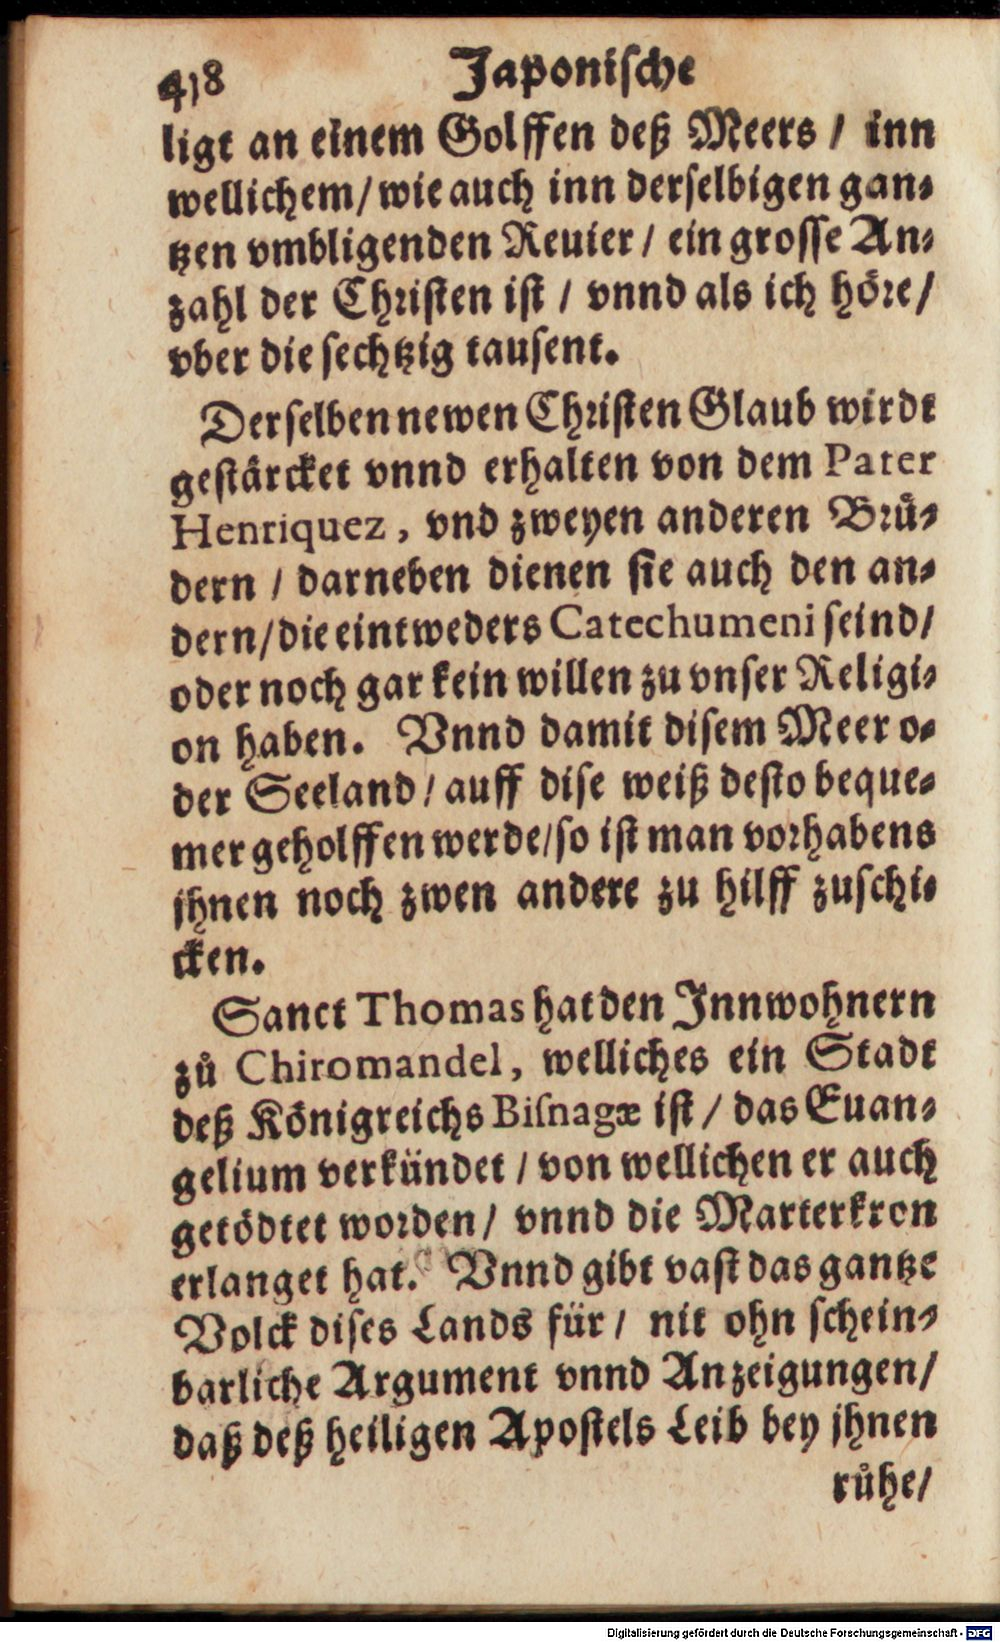 418 Japonische
ligt an einem Golffen deß Meers / inn
wellichem/ wie auch inn derselbigen gan-
tzen vmbligenden Reuier / ein grosse An-
zahl der Christen ist / vnnd als ich höre/
vber die sechtzig tausent.
Derselben newen Christen Glaub wirdt
gestärcket vnnd erhalten von dem Pater
Henriquez, vnd zweyen anderen Bruͤ-
dern / darneben dienen sie auch den an-
dern/ die eintweders Catechumeni seind/
oder noch gar kein willen zu vnser Religi-
on haben. Vnnd damit disem Meer o-
der Seeland / auff dise weiß desto beque-
mer geholffen werde/ so ist man vorhabens
jhnen noch zwen andere zu hilff zuschi-
cken.
Sanct Thomas hat den Innwohnern
zuͦ Chiromandel, welliches ein Stadt
deß Königreichs Biſnagæ ist / das Euan-
gelium verkündet / von wellichen er auch
getödtet worden / vnnd die Marterkron
erlanget hat. Vnnd gibt vast das gantze
Volck dises Lands für / nit ohn schein-
barliche Argument vnnd Anzeigungen/
daß deß heiligen Apostels Leib bey jhnen
ruͦhe/
Digitalisierung gefördert durch die Deutsche Forschungsgemeinschaft - DFG